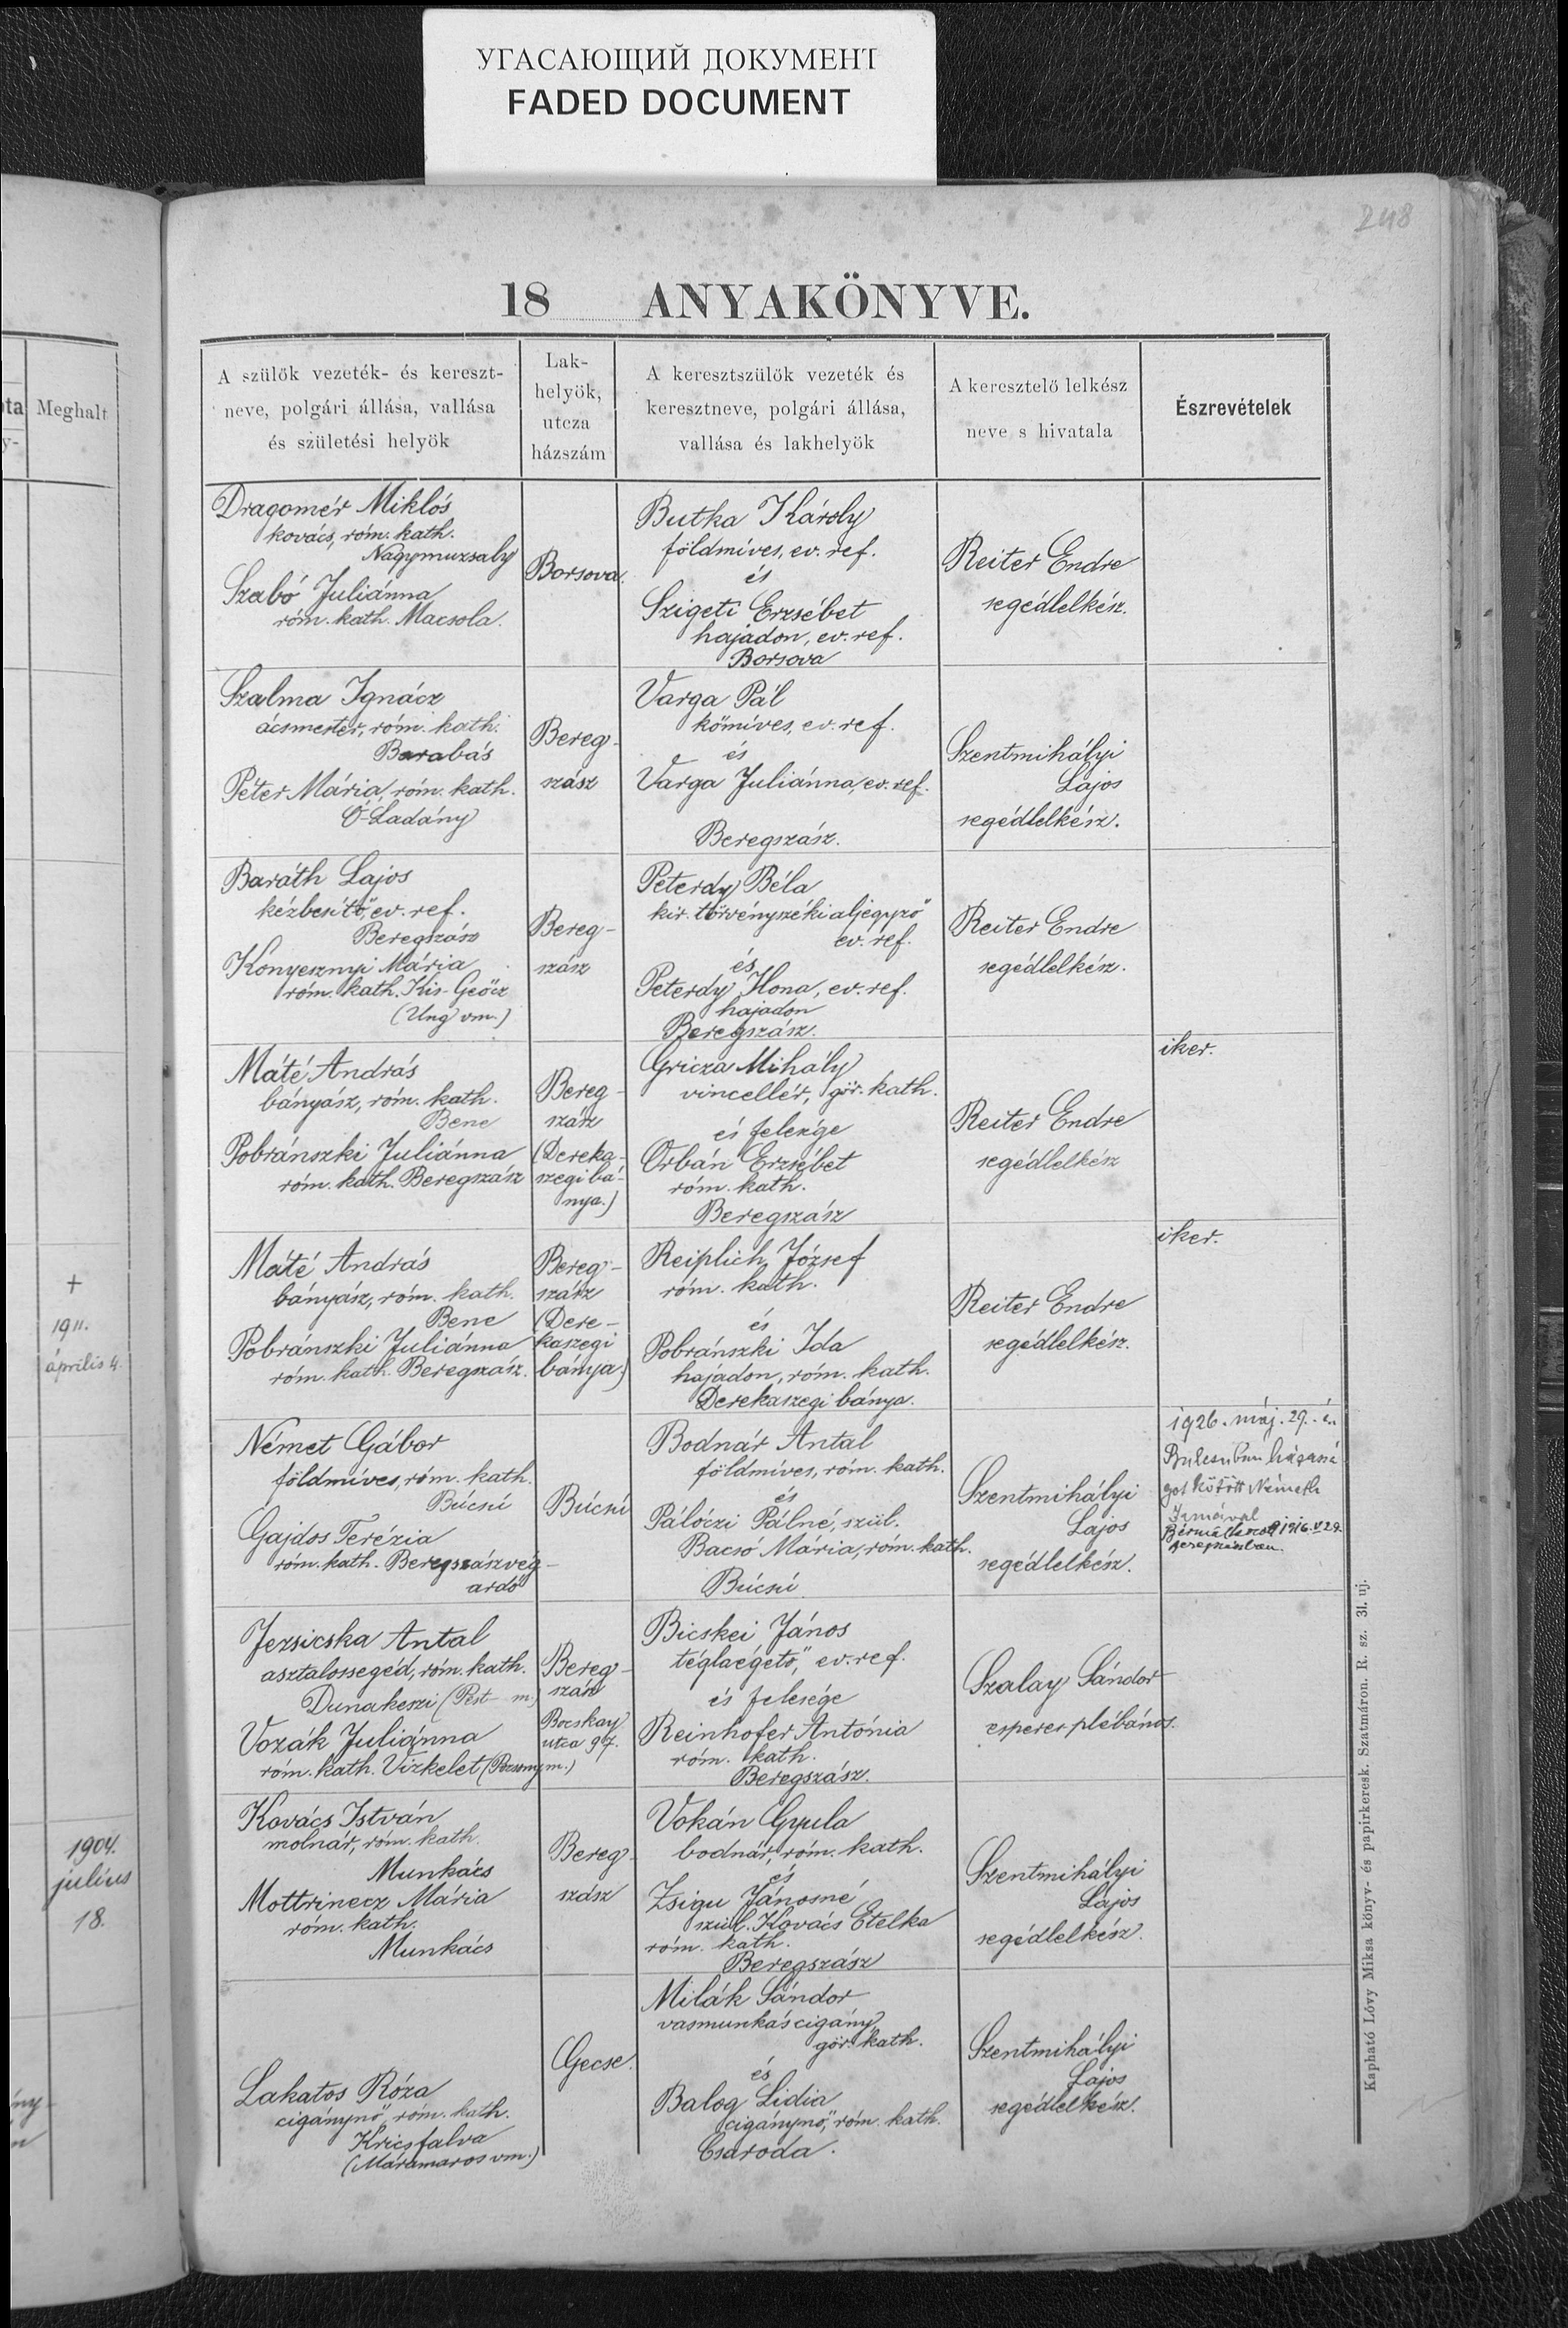 УГАСАЮЩИЙ ДОКУМЕНТ
FADED DOCUMENT
248
18 ANYAKÖNYVE.
Meghalt
A szülők vezeték- és kereszt-
neve, polgári állása, vallása
és születési helyök
Lak-
helyök,
utcza
házszám
A keresztszülők vezeték és
keresztneve, polgári állása,
vallása és lakhelyök
A keresztelő lelkész
neve s hivatala
Észrevételek
Dragomér Miklós
kovács, róm. kath.
Nagymuzsaly
Szabó Juliánna
róm. kath. Macsola.
Borsova.
Butka Károly
földmíves, ev. ref.
és
Szigeti Erzsébet
hajadon, ev. ref.
Borsova
Reiter Endre
segédlelkész.
Szalma Ignácz
ácsmester, róm. kath.
Barabás
Péter Mária, róm. kath.
Ó-Ladány
Bereg-
szász
Varga Pál
kőmíves, ev. ref.
és
Varga Juliánna, ev. ref.
Beregszász.
Szentmihályi
Lajos
segédlelkész.
Baráth Lajos
kézbesítő, ev. ref.
Beregszász
Konyesznyi Mária
róm. kath. Kis-Geőcz
(Ung vm.)
Bereg-
szász
Péterdy Béla
kir. törvényszéki aljegyző
ev. ref.
és
Péterdy Ilona, ev. ref.
hajadon
Beregszász.
Reiter Endre
segédlelkész.
Máté András
bányász, róm. kath.
Bene
Pobránszki Juliánna
róm. kath. Beregszász
Bereg-
szász
(Dereka-
szegi bá-
nya.)
Gricza Mihály
vinczellér, gör. kath.
és felesége
Orbán Erzsébet
róm. kath.
Beregszász
Reiter Endre
segédlelkész
iker.
Máté András
bányász, róm. kath.
Bene
Pobránszki Juliánna
róm. kath. Beregszász.
Bereg-
szász
(Dere-
kaszegi
bánya.)
Reiplich József
róm. kath.
és
Pobránszki Ida
hajadon, róm. kath.
Derekaszegi bánya.
Reiter Endre
segédlelkész.
iker.
+
1911.
április 4.
Német Gábor
földmíves, róm. kath.
Búcsú
Gajdos Terézia
róm. kath. Beregszászvég-
ardó
Búcsú
Bodnár Antal
földmíves, róm. kath.
és
Pálóczi Pálné, szül.
Bacsó Mária, róm. kath.
Búcsú
Szentmihályi
Lajos
segédlelkész.
1926. máj. 29.-én
házassá
got kötött Németh
Irmával
Bérmálkozott 1916. V 29.
Beregszászban.
Jezsicska Antal
asztalossegéd, róm. kath.
Dunakeszi (Pest m.)
Vozák Juliánna
róm. kath. Vizkelet (Pozsony m.)
Bereg-
szász
Bocskay
utca 97.
Bicskei János
téglaégető, ev. ref.
és felesége
Reinhofer Antónia
róm. kath.
Beregszász.
Szalay Sándor
esperes plébános.
Kovács István
molnár, róm. kath.
Munkács
Mottrinecz Mária
róm. kath.
Munkács
Bereg-
szász
Vokán Gyula
bodnár, róm. kath.
és
Zsigu Jánosné
szül. Kovács Etelka
róm. kath.
Beregszász
Szentmihályi
Lajos
segédlelkész.
1904.
július
18.
Lakatos Róza
cigánynő, róm. kath.
Kricsfalva
(Máramaros vm.)
Gecse.
Milák Sándor
vasmunkás cigány
gör. kath.
és
Balog Lidia
cigánynő, róm. kath.
Csaroda.
Szentmihályi
Lajos
segédlelkész.
Kapható Lővy Miksa könyv- és papirkeresk. Szatmáron. R. sz. 31. uj.